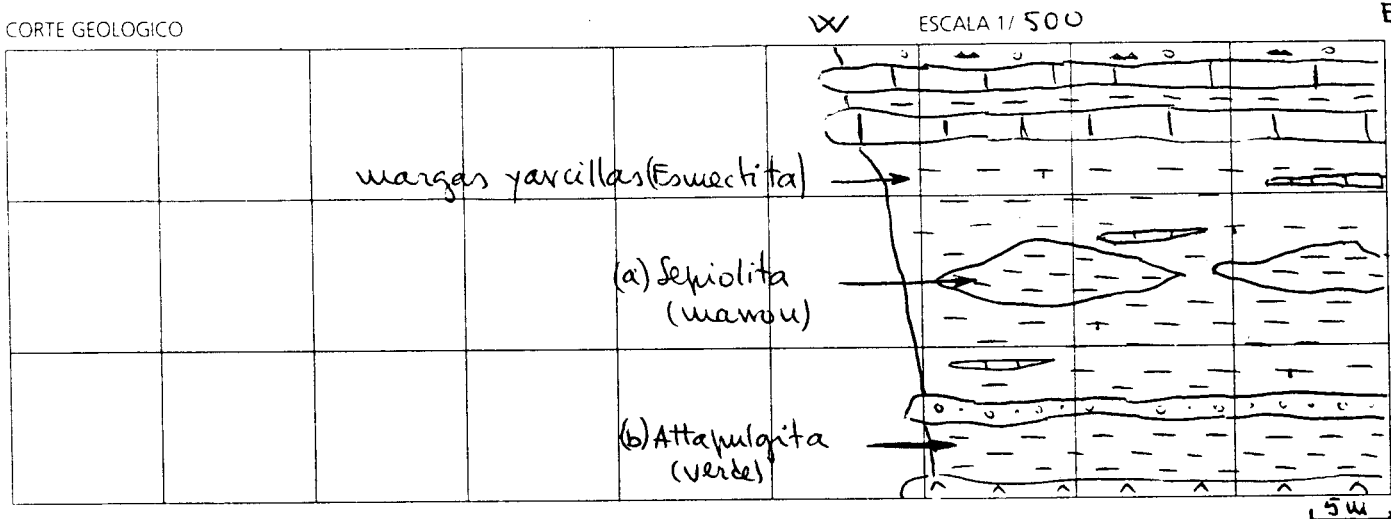 CORTE GEOLOGICO
W ESCALA 1/ 500 E
margas y arcillas (Esmectita)
(a) Sepiolita
(marron)
(b) Attapulgita
(verde)
5 m